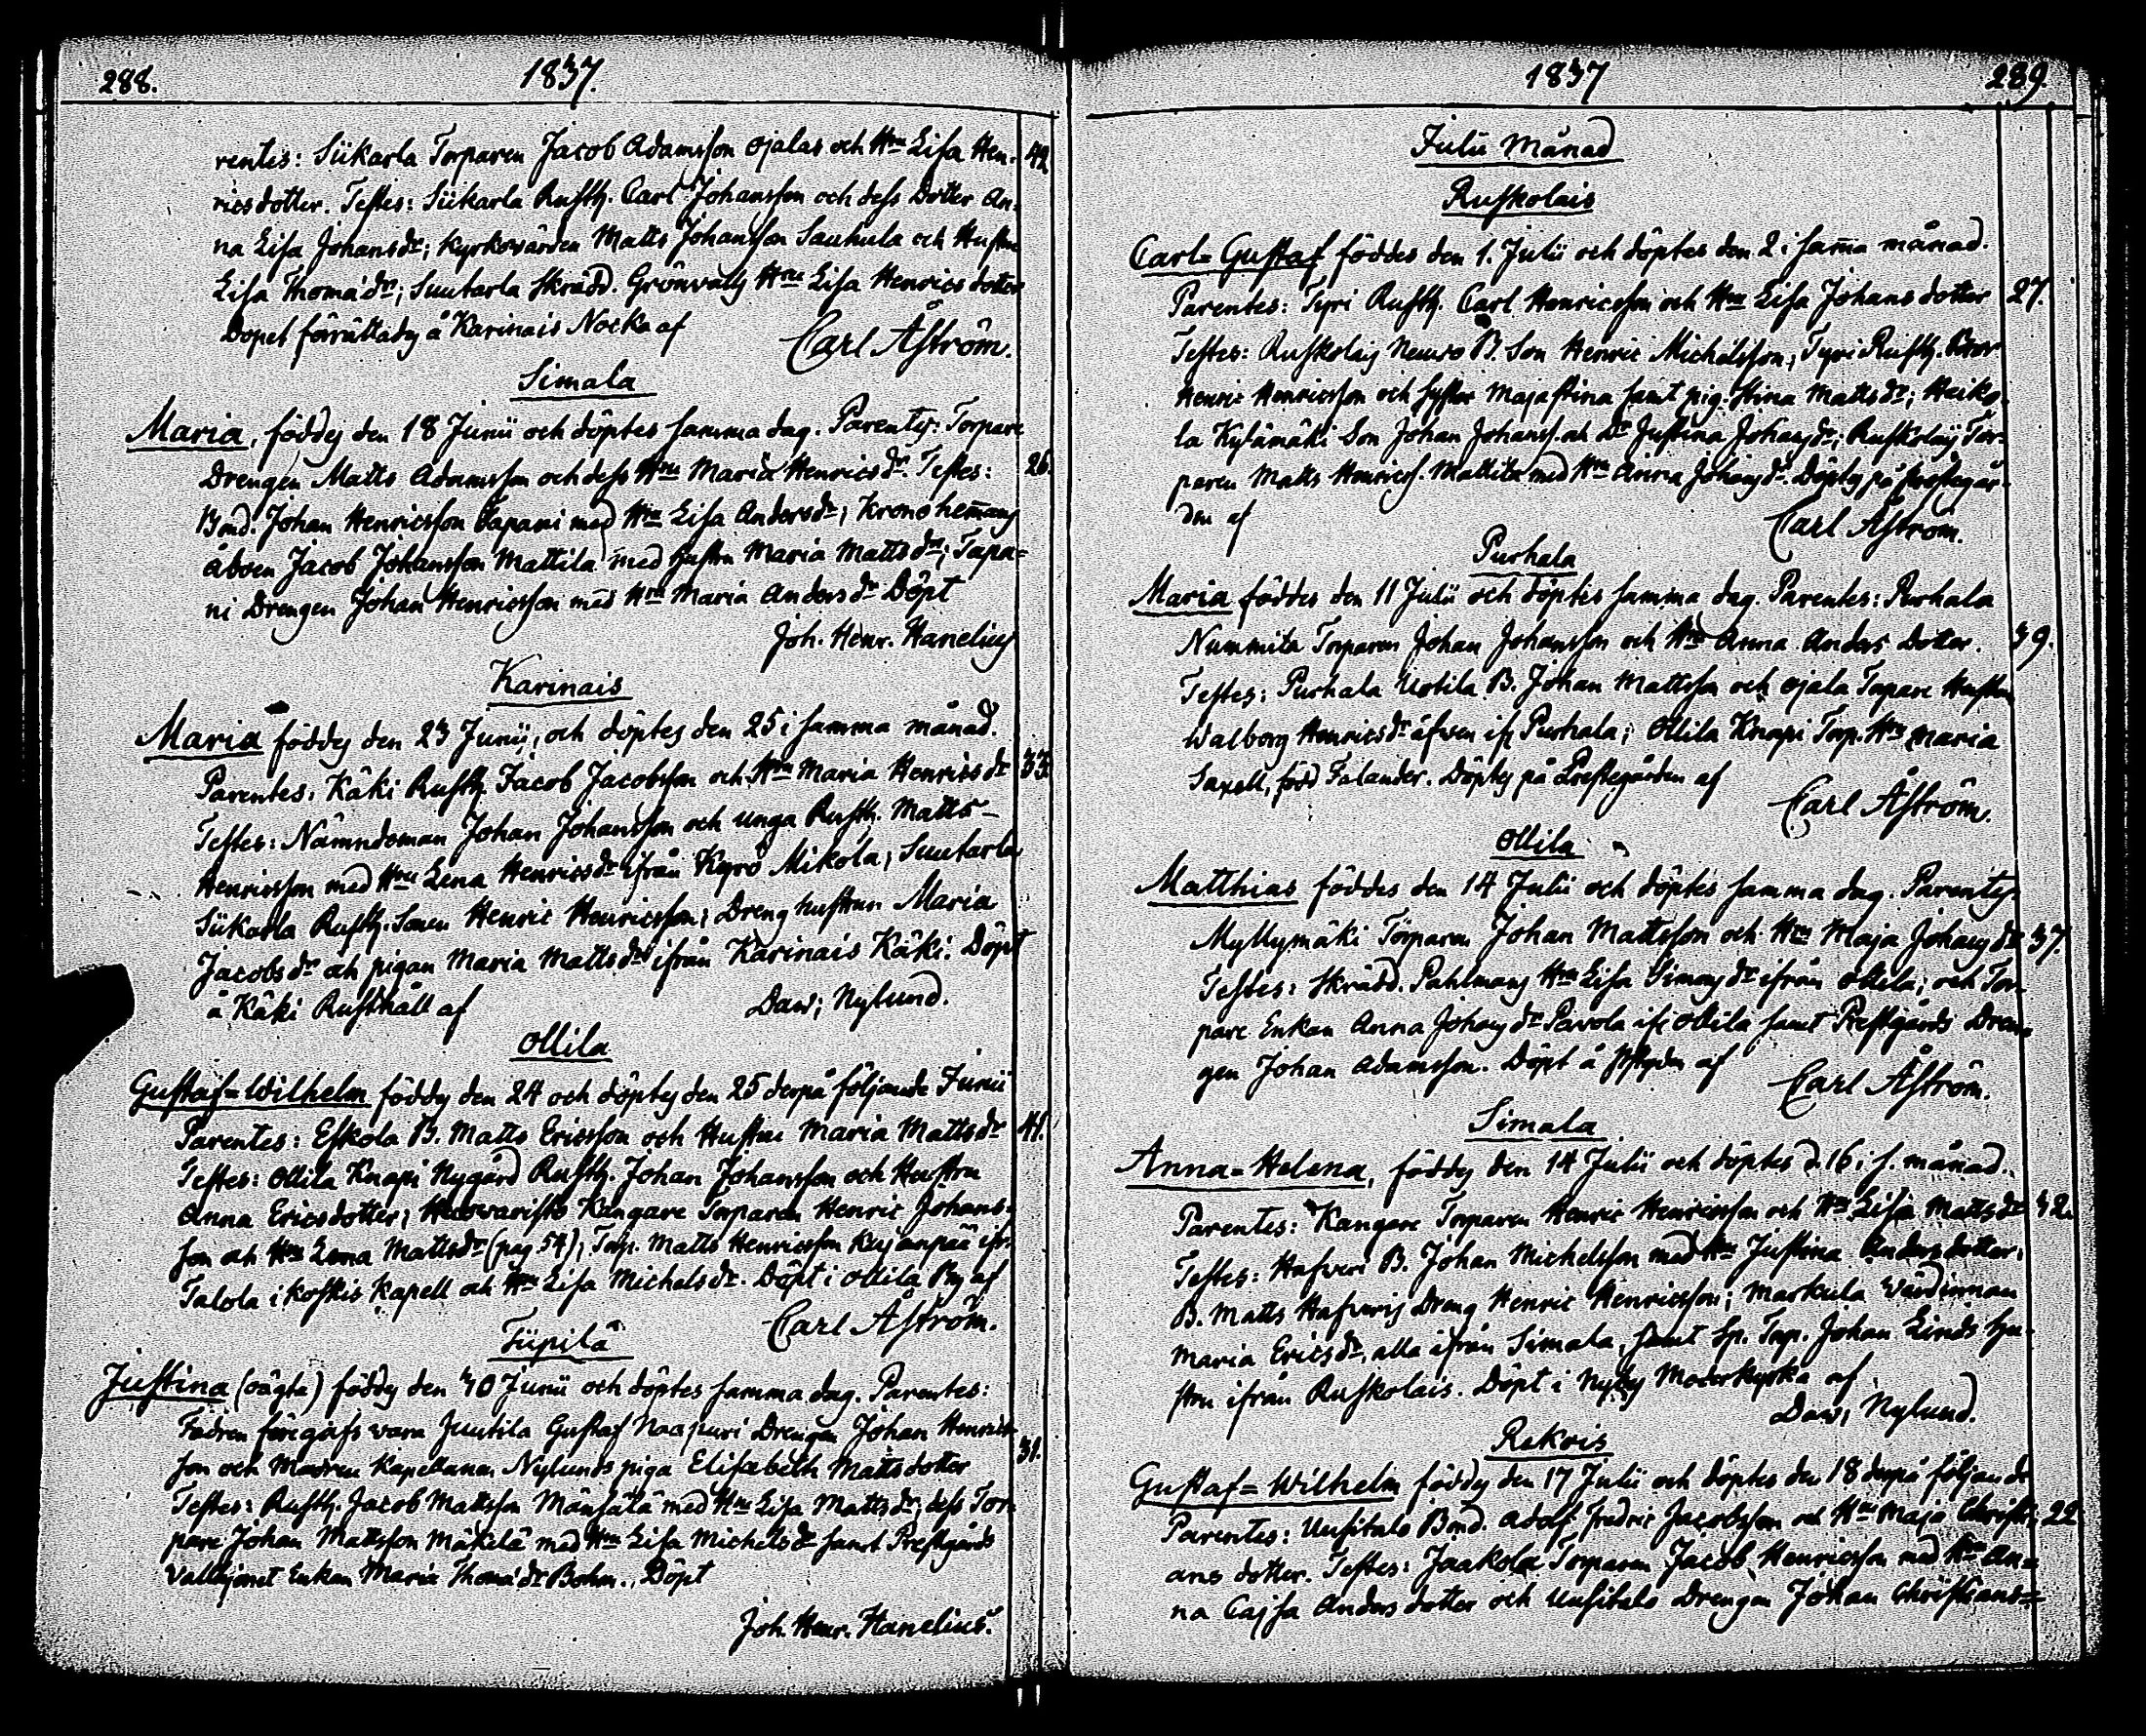 288.
1837.
rentes: Siikarla Torparen Jacob Adamsson Ojalas och Hru Lisa Hen- 42
ricsdotter. Testes: Siikarla Rusth. Carl Johansson och dess Dotter An-
na Lisa Johansdr; Kyrkovärden Matts Johansson Sauhula och Hustru
Lisa Thomædr; Suutarla Skrädd. Grönvalls Hru Lisa Henricsdotter
Dopet förrättades å Karinais Nocka af Carl Åström.
Simala
Maria, föddes den 18 Junii och döptes samma dag. Parentes: Torpare
Drengen Matts Adamsson och dess Hru Maria Henricsdr. Testes: 26.
Bond. Johan Henricsson Tapani med Hru Lisa Andersdr; Kronohemans
åboen Jacob Johansson Mattila med hustru Maria Mattsdr; Tapa=
ni Drengen Johan Henricsson med Hru Maria Andersdr Döpt
Joh. Henr. Hanelius
Karinais
Maria föddes den 23 Junii, och döptes den 25 i samma månad.
Parentes. Käki Rusth. Jacob Jacobsson och Hru Maria Henricsdr 33
Testes: Nämndeman Johan Johansson och unga Rusth. Matts
Henricsson med Hru Lena Henricsdr ifrån Kyrö Mikola; Suutarla
Siikarla Rusth. Sonen Henric Henricsson; Dreng hustrun Maria
Jacobsdr och pigan Maria Mattsdr ifrån Karinais Käki. Döpt
å Käki Rusthåll af Dav; Nylund.
Ollila
Gustaf=Wilhelm föddes den 24 och döptes den 25 derpå följande Junii
Parentes: Eskola B. Matts Ericsson och Hustru Maria Mattsdr 41.
Testes: Ollila Knapi Nygård Rusth. Johan Johansson och Hustru
Anna Ericsdotter; Kangare Torparen Henric Johans-
son och Hru Lena Mattsdr (pag 54); Torp. Matts Henricsson Kujanpää ifr.
Talola i Koskis Kapell och Hru Lisa Michelsdr. Döpt i Ollila By af
Carl Åström.
Tiipilä
Justina (oägta) föddes den 30 Junii och döptes samma dag. Parentes:
Fadren föregafs vara Juutila Gustaf Naapuri Drengen Johan Henrics-
son och Modren Kapellanen Nylunds piga Elisabeth Mattsdotter 31.
Testes: Rusth. Jacob Mattsson Mänsälä med Hru Lisa Mattsdr; dess Tor-
pare Johan Mattsson Mäkelä med Hru Lisa Michelsdr samt Prestgårds
Vallhjonet Enkan Maria Thomædr Bohm. Döpt
Joh. Henr. Hanelius.
1837
289.
Julii Månad
Ruskolais
Carl=Gustaf föddes den 1. Julii och döptes den 2 i sama månad.
Parentes: Tyri Rusth. Carl Henricsson och Hru Lisa Johansdotter 27.
Testes: Ruskolais Neuvo B. Son Henric Michelsson; Tyri Rusth. Bror
Henric Henricsson och syster Majastina samt pig. Stina Mattsdr; Heiko-
la Kylämäki Son Johan Johanss. och Dr Justina Johansdr; Ruskolais Tor-
paren Matts Henricss. Mattila med Hru Anna Johansdr. Döptes på prestegår-
den af Carl Åström.
Purhala
Maria föddes den 11 Julii och döptes samma dag. Parentes: Purhala
Nummita Torparen Johan Johansson och Hru Anna Anders Dotter. 39.
Testes: Purhala Uotila B. Johan Mattsson och Ojala Torpare Hustrun
Walborg Henricsdr äfven ifr Purhala; Ollila Knapi Torp. Hru Maria
Saxell, född Falander. Döptes på Prestegården af
Carl Åström.
Ollila
Matthias föddes den 14 Julii och döptes samma dag. Parentes
Myllymäki Torparen Johan Mattsson och Hru Maja Johansdr 37.
Testes: Skrädd. Pahlmans Hru Lisa Simonsdr ifrån Ollila; och Tor-
pare Enkan Anna Johansdr Pavola ifr Ollila samt Prestgårds Dren-
gen Johan Adamsson. Döpt å Pstgden af
Carl Åström.
Simala
Anna=Helena, föddes den 14 Julii och döptes d. 16 i s. månad.
Parentes: Kangare Torparen Henric Henricsson och Hru Lisa Mattsdr 32.
Testes: Hafveri B. Johan Michelsson med Hru Justina Andersdotter;
B. Matts Hafveris Dreng Henric Henricsson; Markula Värdinnan
Maria Ericsdr, alla ifrån Simala, samt Sp. Torp. Johan Linds hu-
stru ifrån Ruskolais. Döpt i Nykyrko Moderkyrka af
Dav; Nylund.
Rekois
Gustaf=Wilhelm föddes den 17 Julii och döptes den 18 derpå följande
Parentes: Uusitalo Bond. Adolf Fredric Jacobsson och Hru Maja Christi- 22
ans dotter. Testes: Jaakola Torparen Jacob Henricsson med Hru An=
na Cajsa Anders dotter och Uusitalo Drengen Johan Christians=